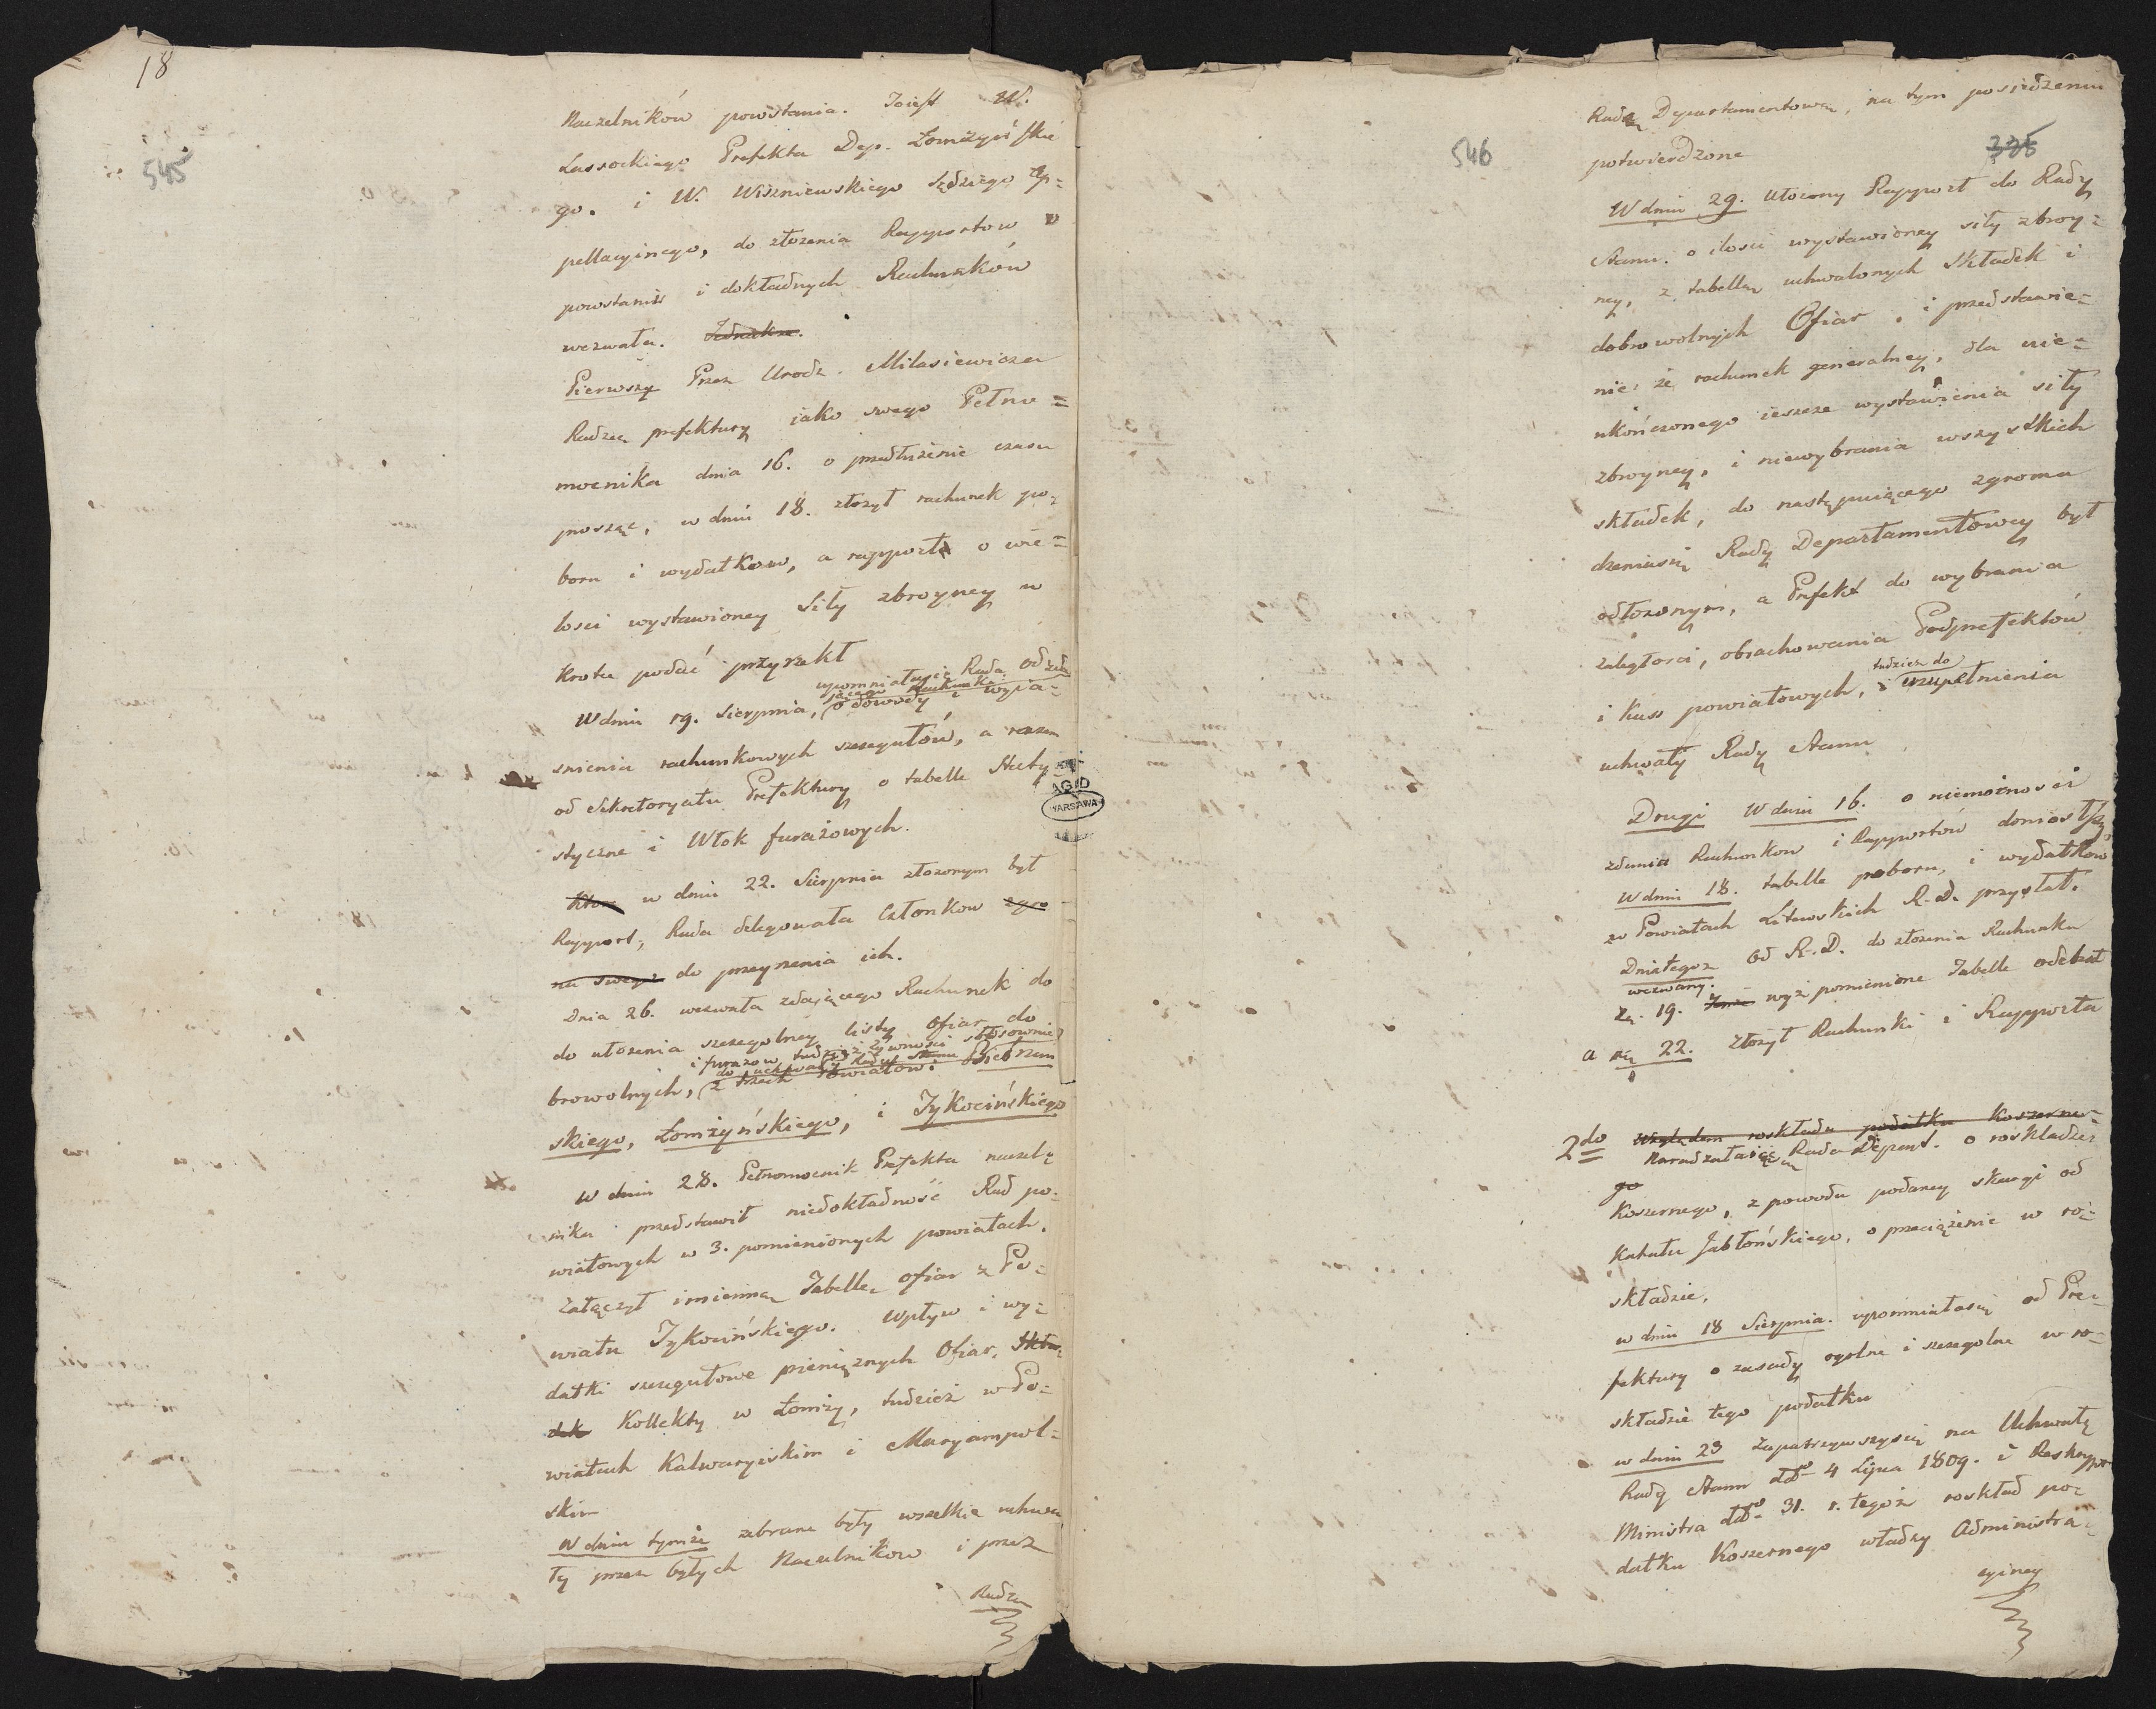 18
545
Naczelników powstania. Joiest W.
Lassockiego Prefekta Dep. Łomżyńskie
go. i W. Wiszniewskiego Sędziego Ap=
pellacyinego, do złożenia Rapportow
powstania i dokładnych Rachunków
wezwała.
Pierwszy Przez Urodz. Milasiewicza
Radzcę prefektury iako swego Pełno=
mocnika dnia 16. o przedłużenie czasu
prosząc, w dniu 18. złożył rachunek po=
boru i wydatkow, a rapport o wie=
lości wystawioney Siły zbroyney w
krotce podać przyrzekł
upomniałasię Rada od zda
jącego Rachunki
W dniu 19. Sierpnia, o dowody i wyia=
snienia rachunkowych szczegułów, a razem
od Sekretoryatu Prefektury o tabelle Staty
styczne i Włok furażowych.
Ktore w dniu 22. Sierpnia złożonym był
Rapport, Rada delegowała Członkow zgro
na swego do przeyrzenia ich.
Dnia 26. wezwała zdającego Rachunek do
do ułożenia szczegolney listy Ofiar do
i furażow, tudzież żywności stosownie
do uchwały Rady Stanu
browolnych, z trzech Powiatow: Biebrzan
skiego, Łomżyńskiego, i Tykocińskiego
W dniu 28. Pełnomocnik Prefekta naczel
nika przedstawił niedokładność Rad po=
wiatowych w 3. pomienionych powiatach.
Załączył imienną Tabellę ofiar z Po=
wiatu Tykocińskiego. Wpływ i wy=
datki szczegułowe pieniężnych Ofiar, Skła=
dek Kollekty w Łomży, tudzież w Po=
wiatach Kalwaryiskim i Maryampol=
skim
W dniu tymże zebrane były wszelkie uchwa
ły przez byłych Naczelników i przez
Radzę
AGAD
WARSZAWA
546
335
Radę Departamentową, na tym posiedzeniu
potwierdzone
W dniu 29. Ułożony Rapport do Rady
Stanu. o ilosci wystawioney siły zbroy=
ney, z tabellą uchwalonych Składek i
dobrowolnych Ofiar, i przedstawie=
nie: że rachunek generalney, dla nie=
ukończonego ieszcze wystawienia siły
zbroyney, i niewybrania wszystkich
składek, do następuiącego zgroma
dzeniasię Rady Departamentowey był
odłożonym, a Prefekt do wybrania
zaległości, obrachowania Podprefektów
tudzież do
i Kass powiatowych, i uzupełnienia
uchwały Rady Stanu
Drugi W dniu 16. o niemożności
zdania Rachunkow i Rapportów doniosłszy
W dniu 18. tabelle poboru, i wydatkow
w Powiatach Litewskich R.D. przysłał.
Dniategoż od R.D. do złożenia Rachunku
wezwany.
19. wyż pomienione Tabelle odebrał
a 22. złożył Rachunki i Rapporta
2do Względem roskładu podatku Koszerne=
Naradzałasię Rada Depart. o roskładzie
go
Koszernego, z powodu podaney skargi od
Kahału Jabłońskiego, o przeciążenie w ro=
składzie.
w dniu 18 Sierpnia. upominałasię od Pre=
fektury o zasady ogolne i szczegolne w ro=
składzie tego podatku
w dniu 23 Zapatrzywszysię na Uchwałę
Rady Stanu ddo 4 Lipca 1809. i Reskrypt
Ministra ddo 31. r. tegoż roskład po=
datku Koszernego władzy Administra=
cyiney